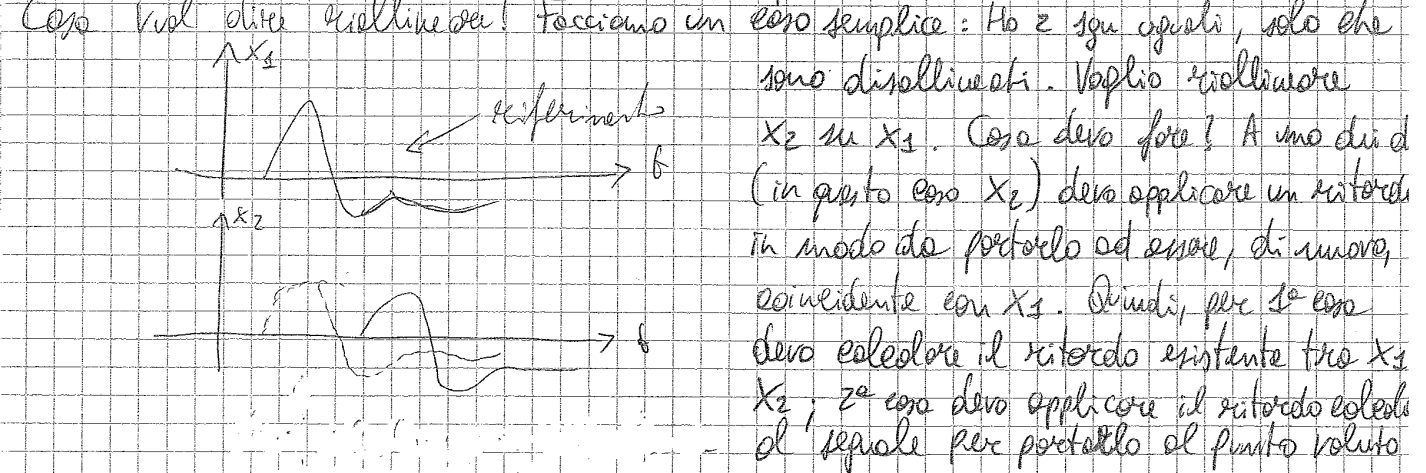 Cosa vuol dire riallineare? Facciamo un caso semplice: Ho 2 sgn uguali, solo che
x1
sono disallineati. Voglio riallineare
riferimento
x2 su x1. Cosa devo fare? A uno dei d
t
(in questo caso x2) devo applicare un ritardo
x2
in modo da portarlo ad essere, di nuovo,
coincidente con x1. Quindi, per 1ª cosa
t
devo calcolare il ritardo esistente tra x1
x2; 2ª cosa devo applicare il ritardo calcola
al segnale per portarlo al punto voluto